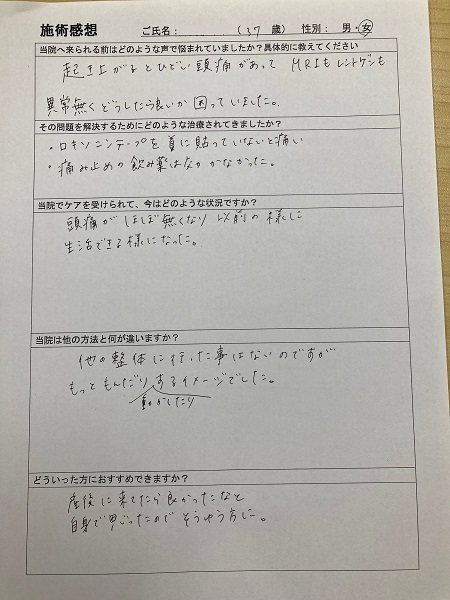 施術感想 ご氏名： (37 歳) 性別： 男・女
当院へ来られる前はどのような声で悩まれていましたか？具体的に教えてください
起き上がるとひどい頭痛があって MRIもレントゲンも
異常無くどうしたら良いか 困っていました。
その問題を解決するためにどのような治療されてきましたか？
・ロキソニンテープを首に貼っていないと痛い
・痛み止めの飲み薬はなかなかなかった。
当院でケアを受けられて、今はどのような状況ですか？
頭痛がほぼ無くなり 以前の様に
生活できる様になった。
当院は他の方法と何が違いますか？
他の整体に行った事はないのですが
もっともんだりするイメージでした。
動かしたり
どういった方におすすめできますか？
産後に来てたら良かったなと
自身で思ったので そうゆう方に。